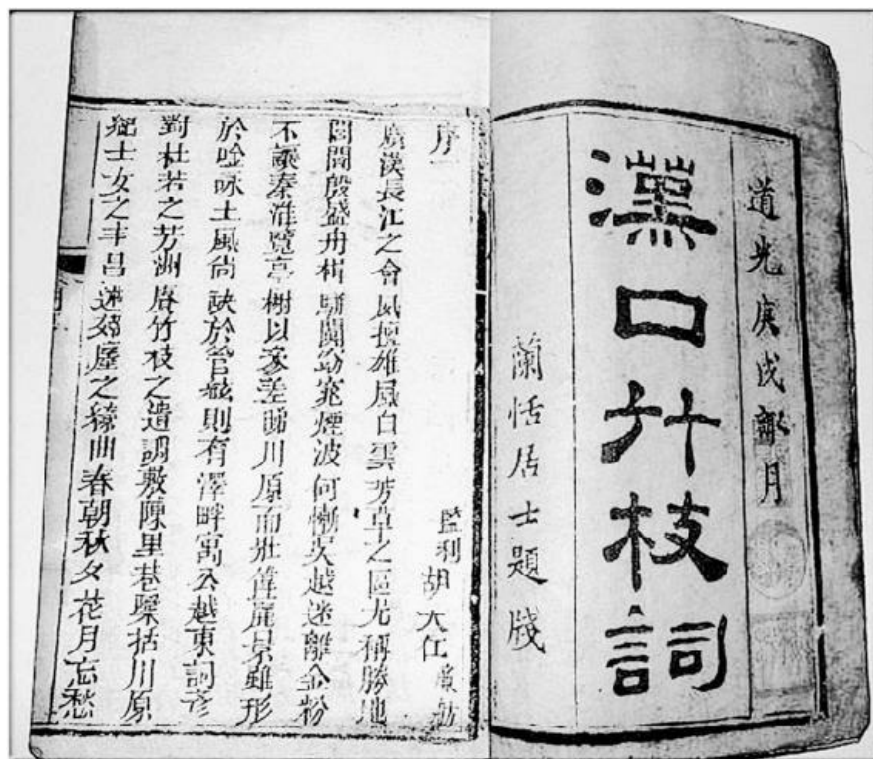 道光庚戌月
漢口竹枝詞
蘭恬居士題牋
序一
監利胡大任
廣漢長江之會夙擅雄風白雲芳草之區尤稱勝地
闤闠殷盛舟楫駢闐窈窕煙波何慚吳越迷離金粉
不讓秦淮覽亭榭以參差睇川原而壯麗景雖形
於唫咏土風尚缺於管絃則有澤畔寓公越東詞彥
對杜若之芳洲賡竹枝之遺調敷陳里巷檃括川原
紀士女之丰昌述屋之綺曲春朝秋夕花月忘愁